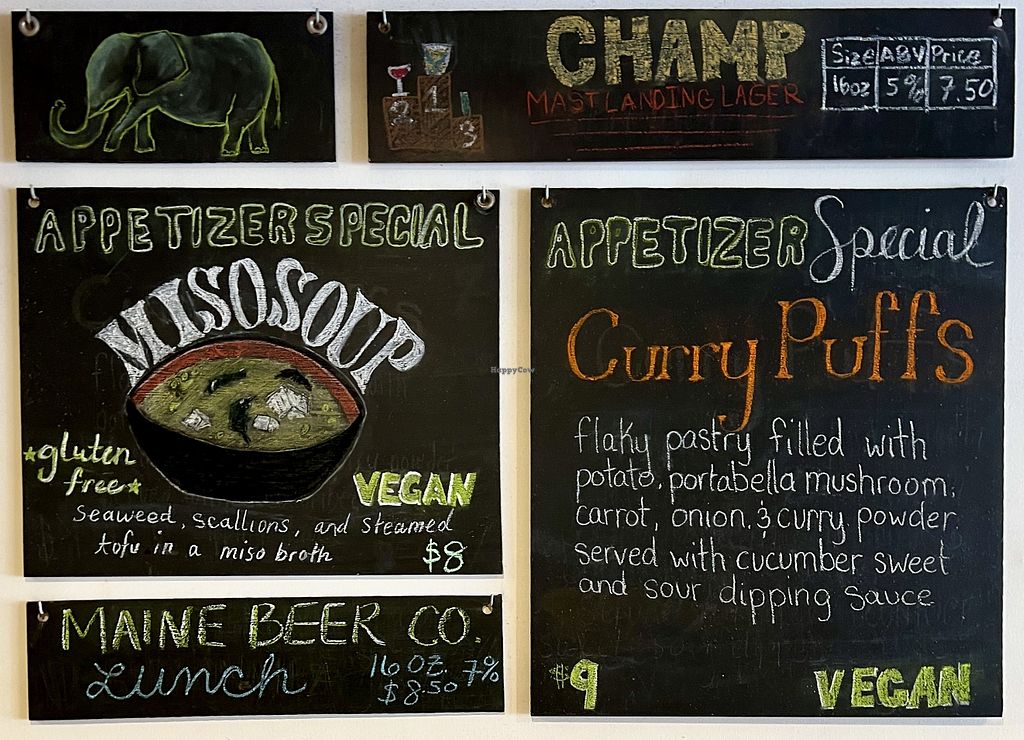 CHAMP
MAST LANDING LAGER
Size ABV Price
16oz 5% 7.50
2 1 3
APPETIZER SPECIAL
MISO SOUP
gluten
free
VEGAN
seaweed, scallions, and steamed
tofu in a miso broth
$8
APPETIZER Special
Curry Puffs
flaky pastry filled with
potato, portabella mushroom,
carrot, onion, & curry powder.
served with cucumber sweet
and sour dipping sauce
$9
VEGAN
MAINE BEER CO.
Lunch
16 OZ. 7%
$8.50
HappyCow